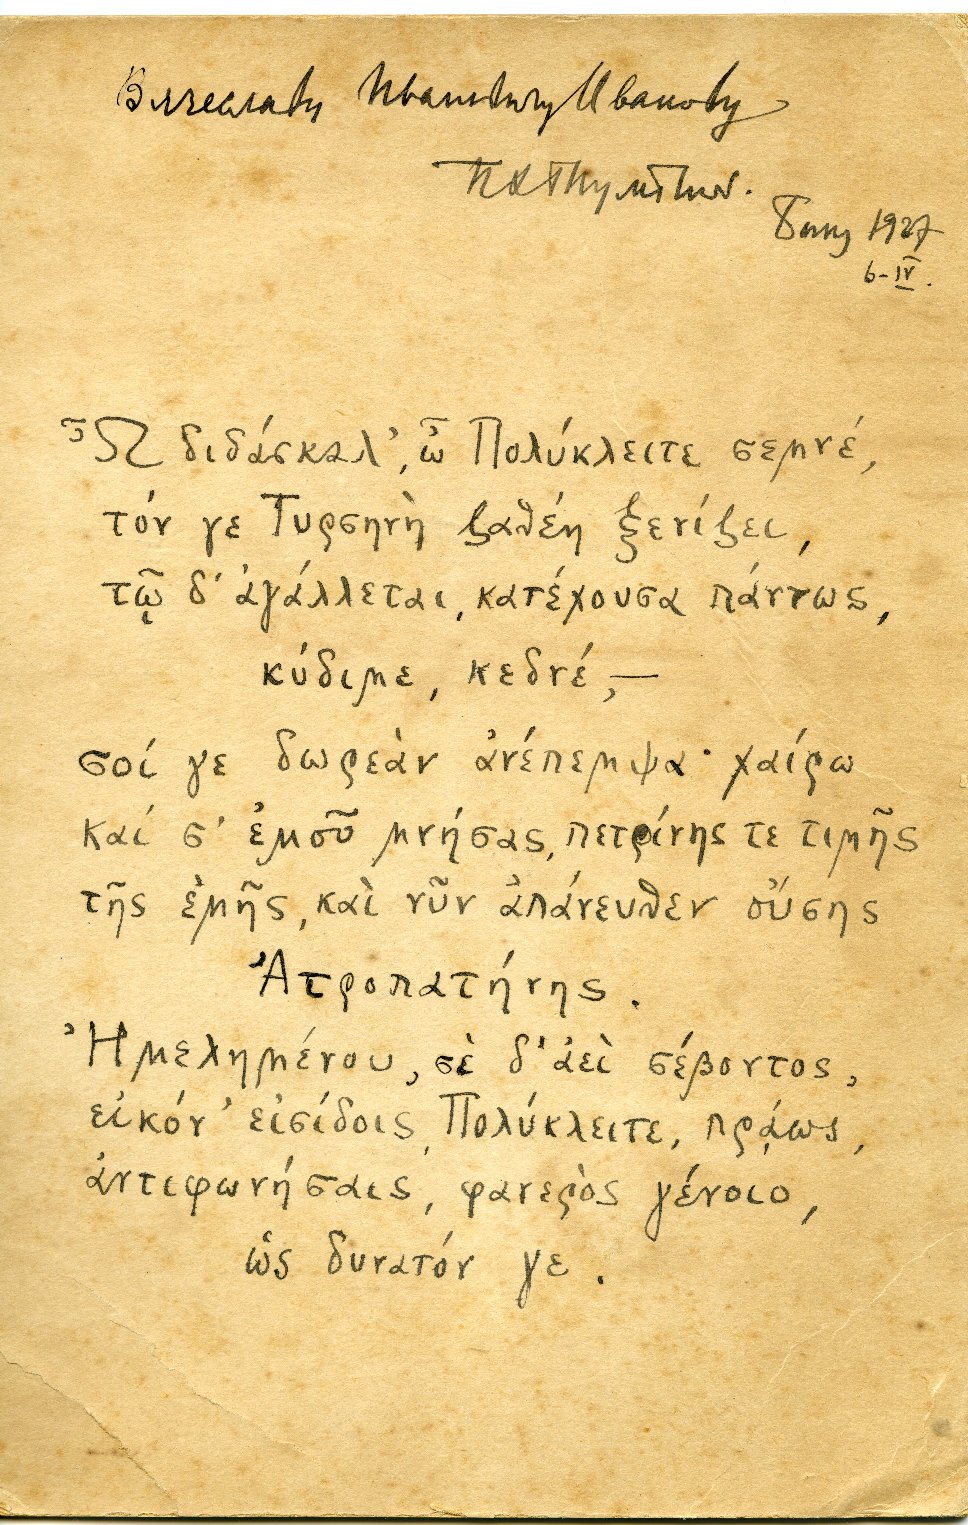 Вячеславу Ивановичу Иванову
Баку 1927
6–IV.
Ὦ διδάσκαλ', ὦ Πολύκλειτε σεμνέ,
τόν γε Τυρσηνὴ ζαθέη ξενίζει,
τῷ δ' ἀγάλλεται, κατέχουσα πάντως,
κύδιμε, κεδνέ, —
σοί γε δωρεὰν ἀνέπεμψα· χαίρω
καί σ' ἐμοῦ μνήσας, πετρίνης τε τιμῆς
τῆς ἐμῆς, καὶ νῦν ἀπάνευθεν οὔσης
Ἀτροπατήνης.
Ἠμελημένου, σὲ δ' ἀεὶ σέβοντος,
εἰκόν' εἰσίδοις, Πολύκλειτε, πρᾴως,
ἀντιφωνήσαις, φανερὸς γένοιο,
ὡς δυνατόν γε.